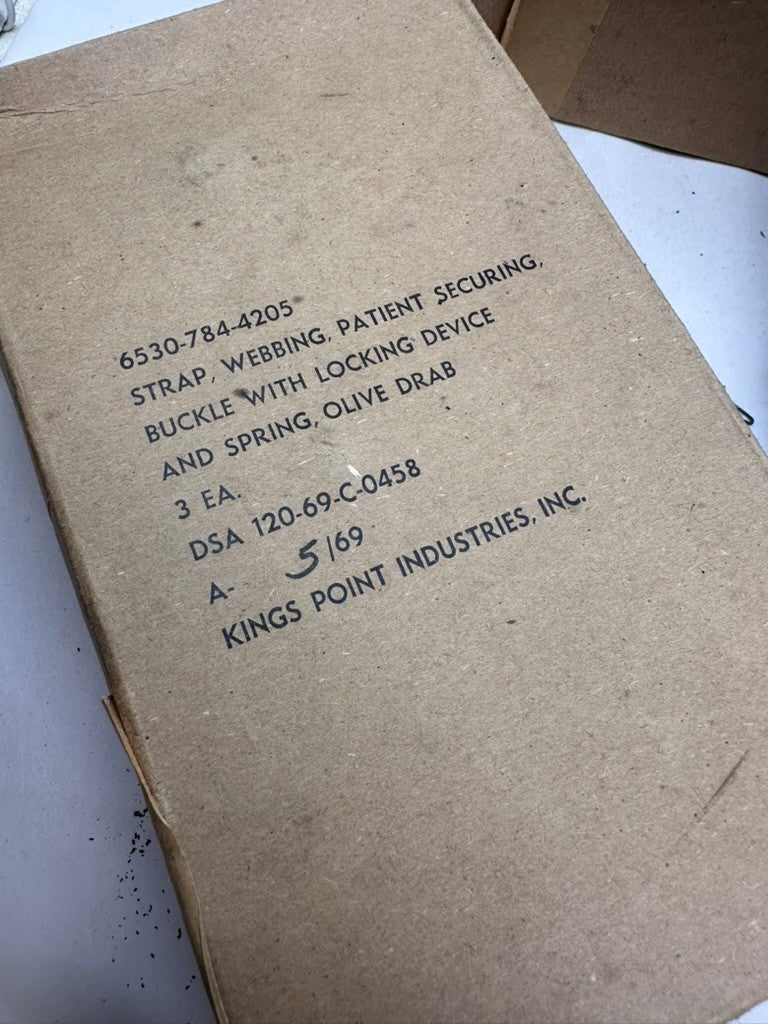 6530-784-4205
STRAP, WEBBING, PATIENT SECURING,
BUCKLE WITH LOCKING DEVICE
AND SPRING, OLIVE DRAB
3 EA.
DSA 120-69-C-0458
A- 5/69
KINGS POINT INDUSTRIES, INC.